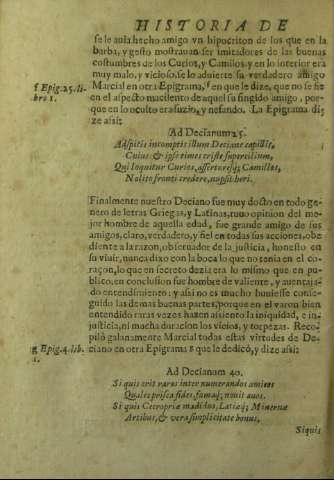 HISTORIA DE
se le auia hecho amigo vn hipocriton de los que en la
barba, y gesto mostrauan ser imitadores de las buenas
costumbres de los Curios, y Camilos, y en lo interior era
muy malo, y vicioso, se lo aduierte su verdadero amigo
f Epig. 25. li- Marcial en otra Epigrama, f en que le dize, que no se fie
bro 1. en el aspecto macilento de aquel su fingido amigo, por-
que en lo oculto era suzio, y nefando. La Epigrama di-
ze assi:
Ad Decianum 25.
Adspicis incomptis illum Deciane capillis,
Cuius & ipse times triste supercilium,
Qui loquitur Curios, assertoresq; Camillos,
Nolito fronti credere, nupsit heri.
Finalmente nuestro Deciano fue muy docto en todo ge-
nero de letras Griegas, y Latinas, tuuo opinion del me-
jor hombre de aquella edad, fue grande amigo de sus
amigos, claro, verdadero, y fiel en todas sus acciones, obe
diente a la razon, obseruador de la justicia, honesto en
su viuir, nunca dixo con la boca lo que no tenia en el co-
raçon, lo que en secreto dezia era lo mismo que en pu-
blico, en conclusion fue hombre de valiente, y auentaja-
do entendimiento: y assi no es mucho huuiesse conse-
guido las demas buenas partes, porque en el varon bien
entendido raras vezes hazen assiento la iniquidad, e in-
justicia, ni mucha duracion los vicios, y torpezas. Reco-
piló galanamente Marcial todas estas virtudes de De-
g Epig. 4. lib. ciano en otra Epigrama g que le dedicó, y dize assi:
1.
Ad Decianum 40.
Si quis erit raros inter numerandos amicos
Quales prisca fides, famaq; nouit anus.
Si quis Cecropiæ madidus, Latiæq; Mineruæ
Artibus, & vera simplicitate bonus,
Siquis